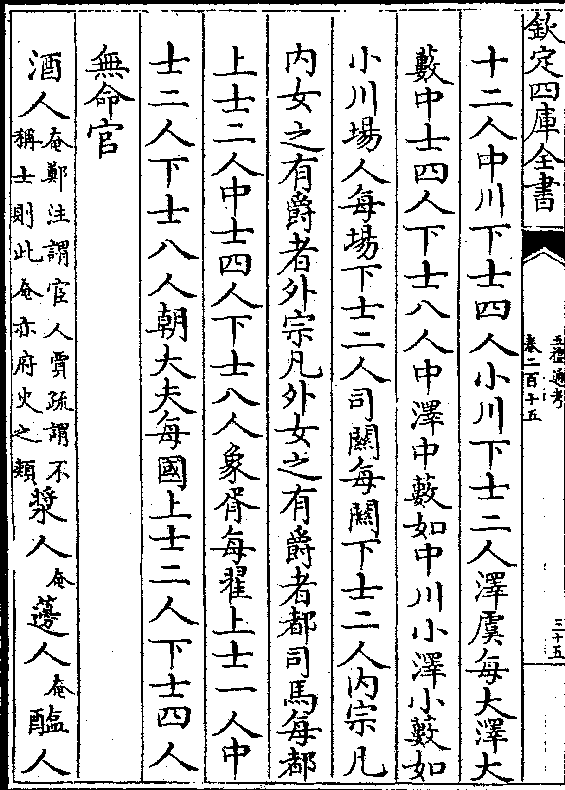 欽定四庫全書
五禮通考
卷二百十五
三十五
十二人中川下士四人小川下士二人澤虞每大澤大
藪中士四人下士八人中澤中藪如中川小澤小藪如
小川場人每場下士二人司關每關下士二人內宗凡
內女之有爵者外宗凡外女之有爵者都司馬每都
上士二人中士四人下士八人象胥每翟上士一人中
士二人下士八人朝大夫每國上士二人下士四人
無命官
酒人奄鄭注謂宦人賈疏謂不稱士則此奄亦府史之類漿人奄籩人奄醢人